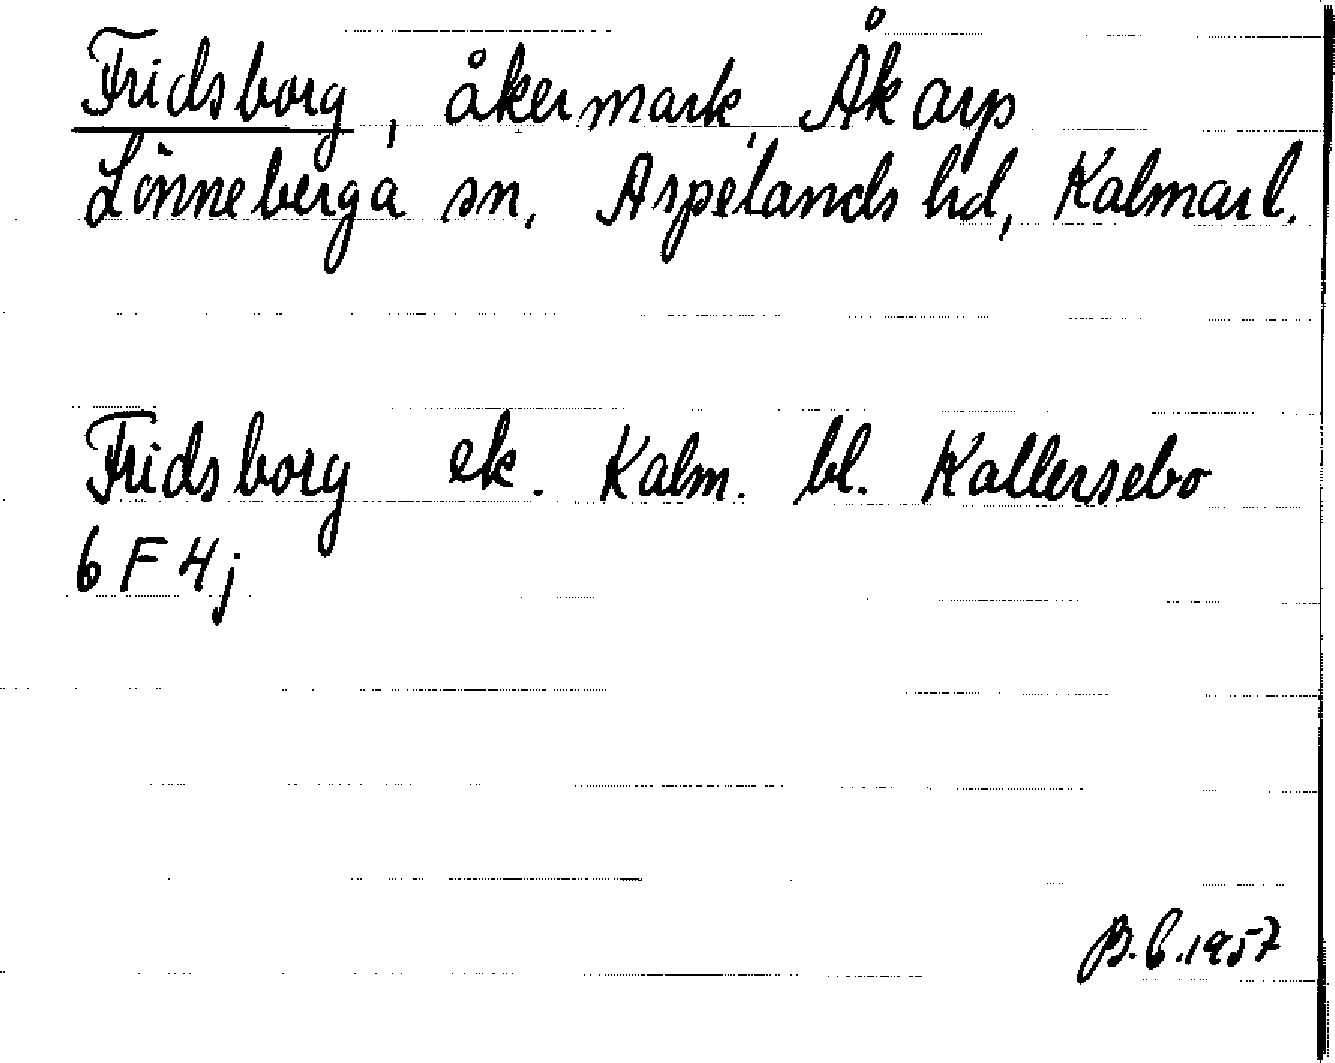 Fridsborg, åkermark, Åkarp
Lönneberga sn, Aspelands hd, Kalmar l.
Fridsborg ek. Kalm. bl. Kallersebo
6 F 4 j
B.b.1957